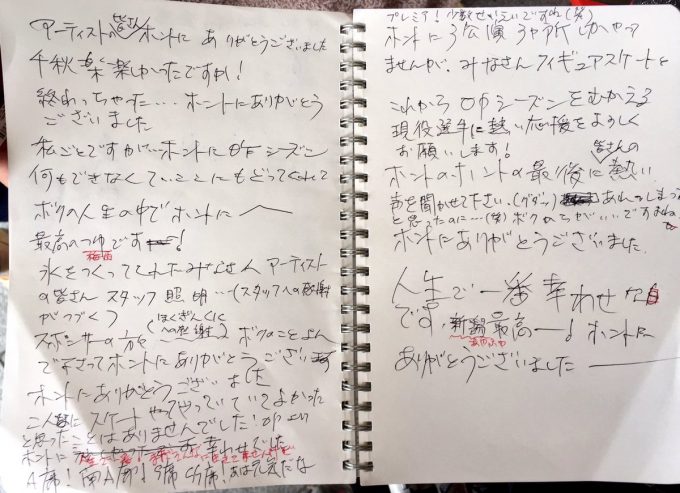 アーティストの皆さんホントに ありがとうございました
千秋楽 楽しかったですね!
終わっちゃった… ホントにありがとう
ございました
私ごとですが… ホントにOFFシーズン
何もできなくて、ここにもどってこれて
ボクの人生の中でホントに
最高のつゆです!
梅雨
氷をつくってくれたみなさん アーティスト
の皆さん スタッフ 照明…(スタッフへの感謝
がつづく)
(ほくぎんくくに
への感謝)
スポンサーの方々 ボクのことよん
で下さってホントにありがとうござい
ホントにありがとうございました
こんなにスケートやってていてよかった
と思ったことはありませんでした!
ホントに 幸わせでした
A席! 南A席! S席 SS席! あは元気だな
プレミア!
ホントに3公演 3ヶ所しかやって
ませんが、みなさんフィギュアスケートを
これから OPシーズンをむかえる
現役選手に熱い応援をよろしく
お願いします!
皆さんの
ホントのホントの最後に熱い
声を聞かせて下さい。(グダッ) あれっしまっ
と思ったのに…(笑) ボクのちがい…ですよね
ホントにありがとうございました
人生で一番幸わせな日
です。新潟最高ー! ホントに
ありがとうございました